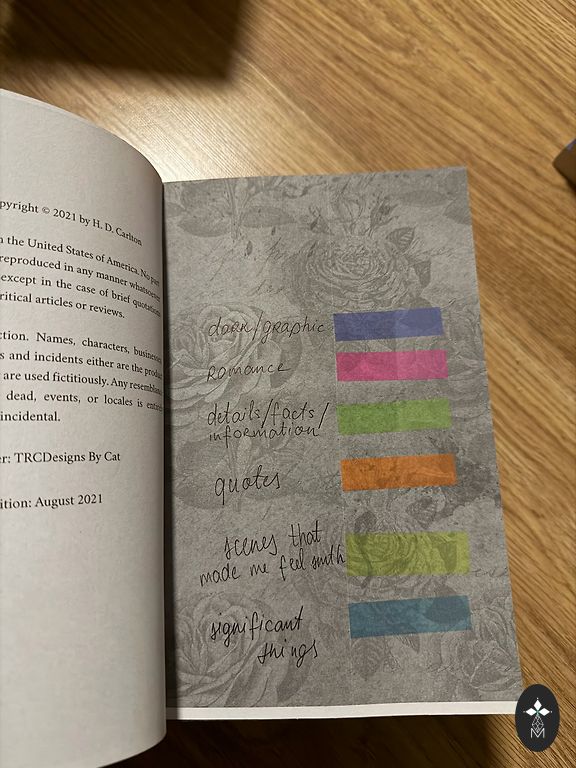 pyright © 2021 by H. D. Carlton
n the United States of America. No part
reproduced in any manner whatsoever
except in the case of brief quotations
ritical articles or reviews.
ction. Names, characters, businesses
s and incidents either are the product
are used fictitiously. Any resemblance
dead, events, or locales is entirely
incidental.
er: TRCDesigns By Cat
ition: August 2021
dark/graphic
Romance
details/facts/
information
quotes
scenes that
made me feel smth
significant
things
M